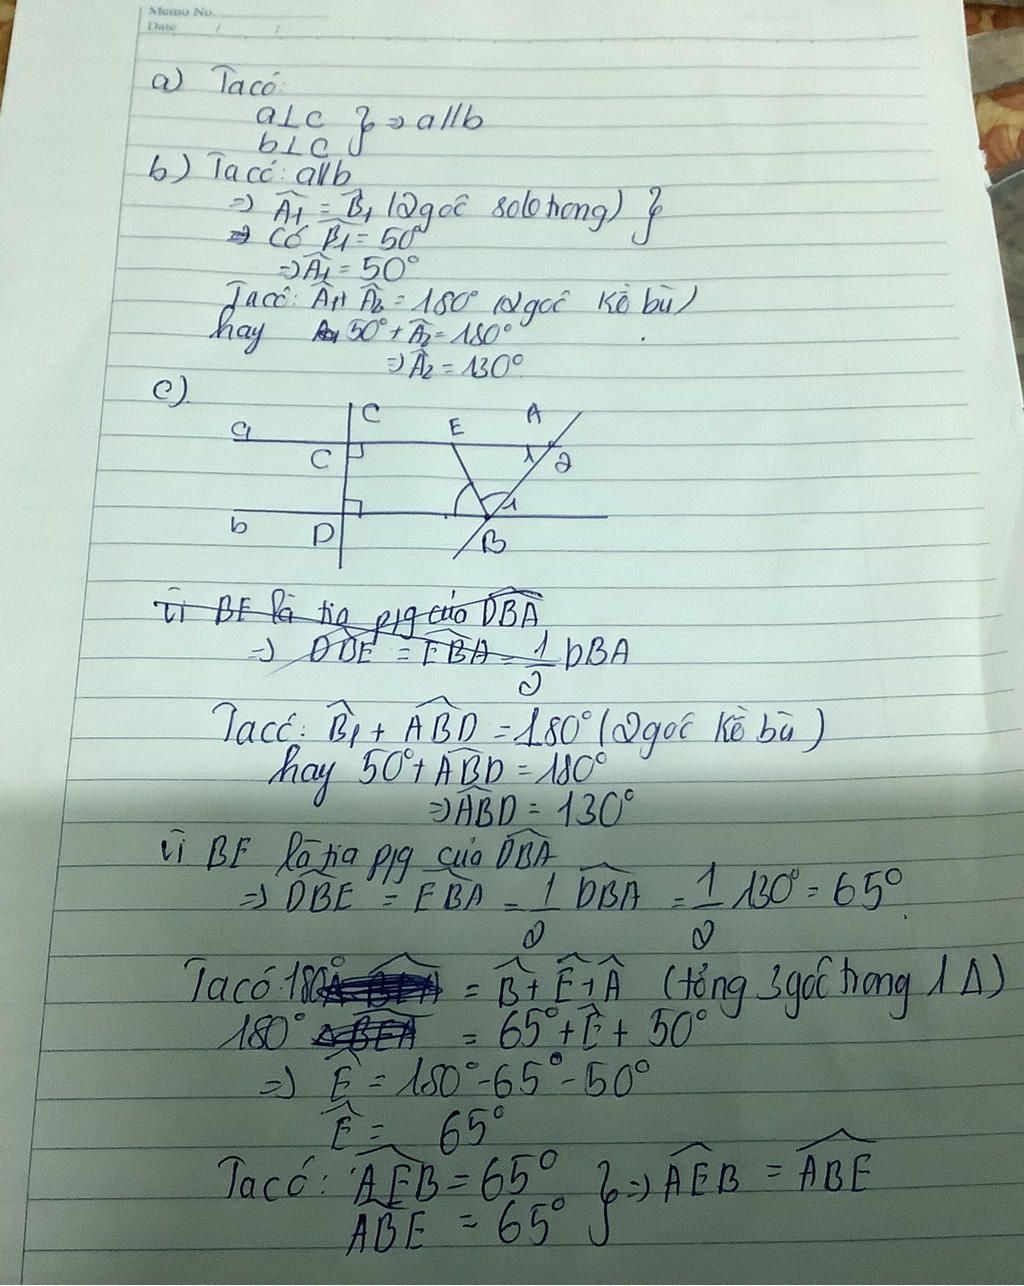 Memo No.
Date / /
a) Ta có:
a⊥c } ⇒ a//b
b⊥c
b) Ta có: a//b
⇒ Â₁ = B̂₁ (2 góc so le trong) }
Có B̂₁ = 50°
⇒ Â₁ = 50°
Ta có: Â₁ + Â₂ = 180° (2 góc kề bù)
hay 50° + Â₂ = 180°
⇒ Â₂ = 130°
c)
C E A
a
C 1 2
1
b D B
Vì BE là tia p/g của DBA
⇒ DBE = EBA = 1/2 DBA
Ta có: B̂₁ + ABD = 180° (2 góc kề bù)
hay 50° + ABD = 180°
⇒ ABD = 130°
Vì BE là tia p/g của DBA
⇒ DBE = EBA = 1/2 DBA = 1/2 130° = 65°
Ta có 180° = B̂ + Ê + Â (tổng 3 góc trong 1 Δ)
180° = 65° + Ê + 50°
⇒ Ê = 180° - 65° - 50°
Ê = 65°
Ta có: AEB = 65° } ⇒ AEB = ABE
ABE = 65°